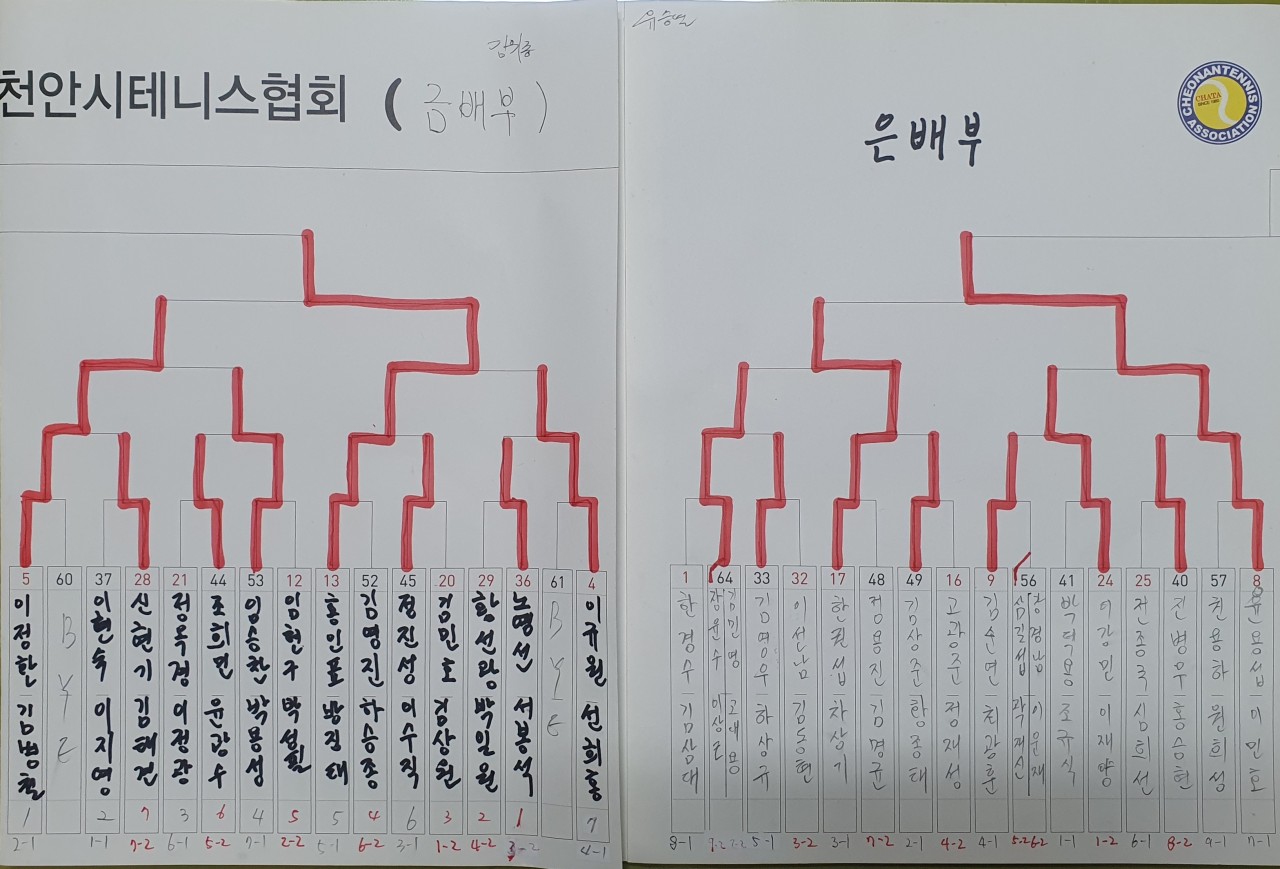 유승별
천안시테니스협회 ( 금배부 )
은배부
CHEONANTENNIS
CHATA
SINCE 1982
ASSOCIATION
5 60 37 28 21 44 53 12 13 52 45 20 29 36 61 4
이정한 김병철
BYE
이현숙 이지영
신현기 김해건
정옥경 이정광
조희민 윤광수
임승한 박용성
임헌구 박성필
홍인표 방진태
김영진 하승종
정진성 이수직
김민호 김상원
황선왕 박일원
노영선 서봉석
BYE
이규원 선희홍
1 2 7 3 6 4 5 5 4 6 3 2 1 7
2-1 1-1 7-2 6-1 5-2 7-1 2-2 5-1 6-2 3-1 1-2 4-2 3-2 4-1
1 64 33 32 17 48 49 16 9 56 41 24 25 40 57 8
한경수 김삼대
장윤수 이상돈
김민명 고대용
김영우 하상규
이선남 김동현
한필섭 차상기
정용진 김명균
김상준 황종태
고광준 정재성
김수연 최광훈
심길섭 곽재신
장경남 이운재
박덕용 조규식
이강민 이재량
전종국 심희선
진병우 홍승현
권용하 원희성
윤용섭 이민호
8-1 9-2 7-2 5-1 3-2 3-1 7-2 2-1 4-2 4-1 5-2 6-2 1-1 1-2 6-1 8-2 9-1 7-1